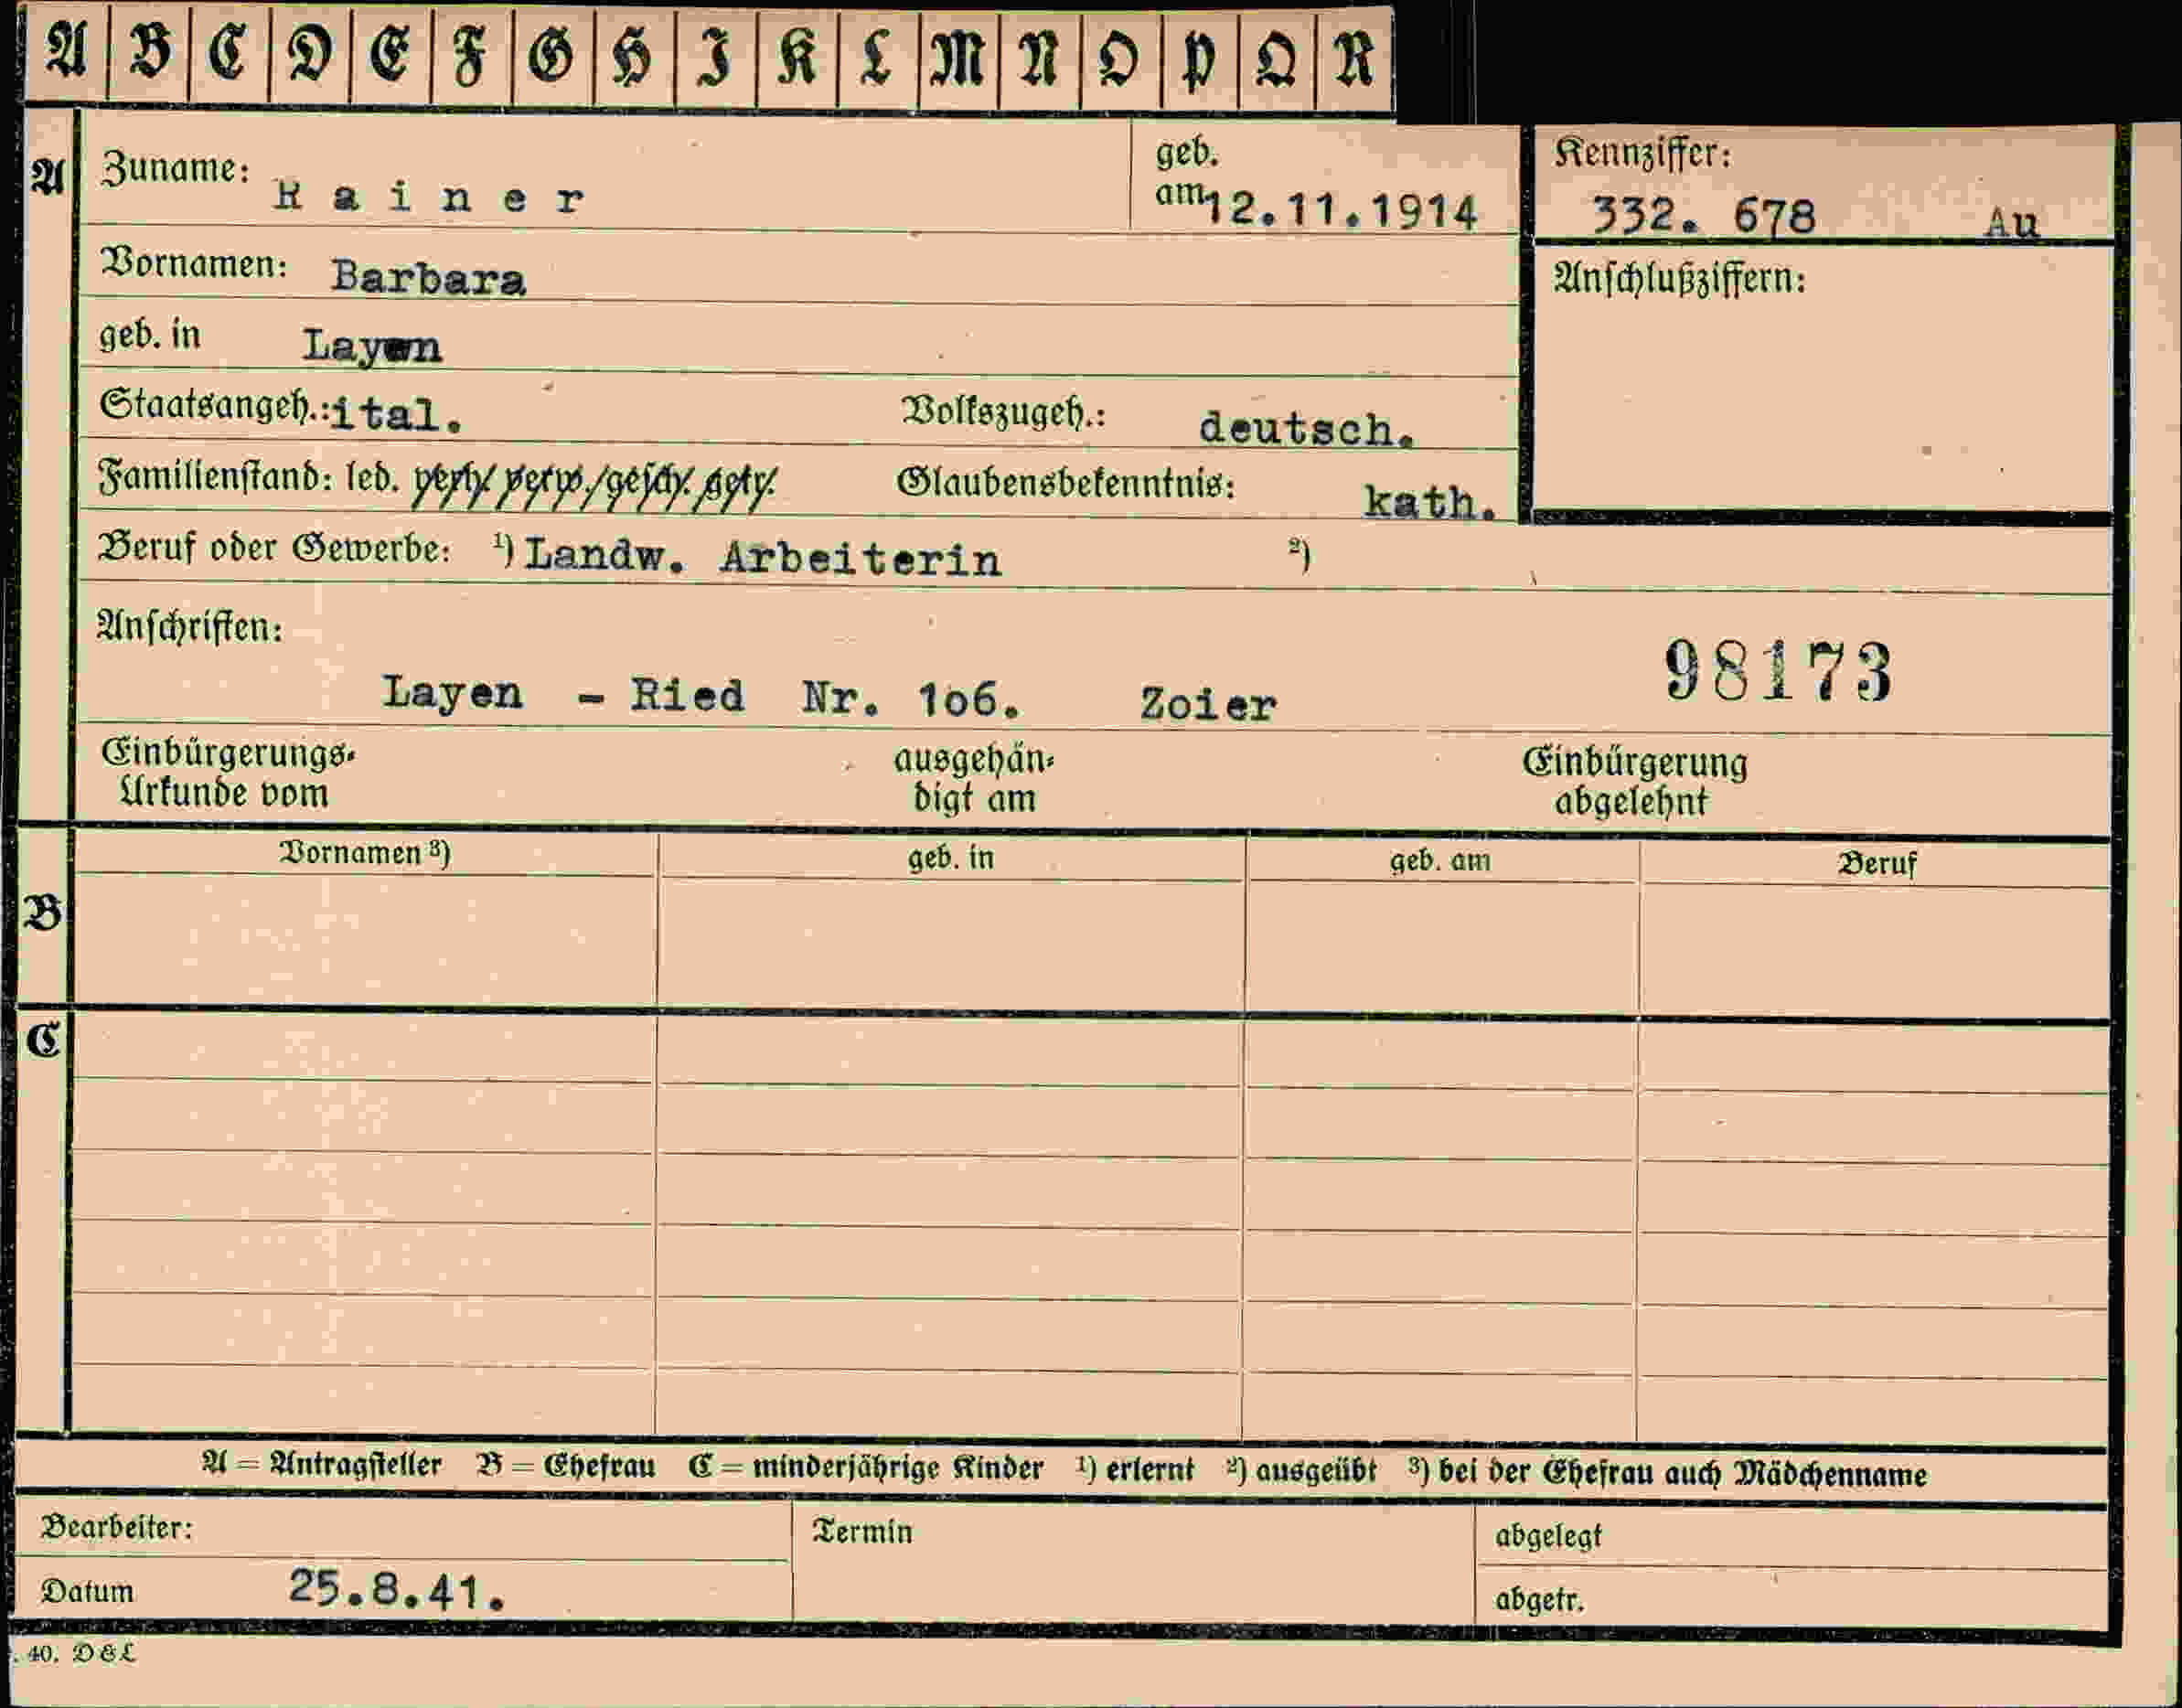 A B C D E F G H I K L M N O P Q R
A Zuname: Rainer geb. am 12.11.1914 Kennziffer: 332. 678 Au
Vornamen: Barbara Anschlußziffern:
geb. in Layen
Staatsangeh.: ital. Volkszugeh.: deutsch.
Familienstand: led. verh. verw. gesch. getr. Glaubensbekenntnis: kath.
Beruf oder Gewerbe: ¹) Landw. Arbeiterin ²)
Anschriften:
98173
Layen - Ried Nr. 1o6. Zoier
Einbürgerungs- ausgehän- Einbürgerung
Urkunde vom digt am abgelehnt
Vornamen ³) geb. in geb. am Beruf
B
C
A = Antragsteller B = Ehefrau C = minderjährige Kinder ¹) erlernt ²) ausgeübt ³) bei der Ehefrau auch Mädchenname
Bearbeiter: Termin abgelegt
Datum 25.8.41. abgetr.
. 40. D&L